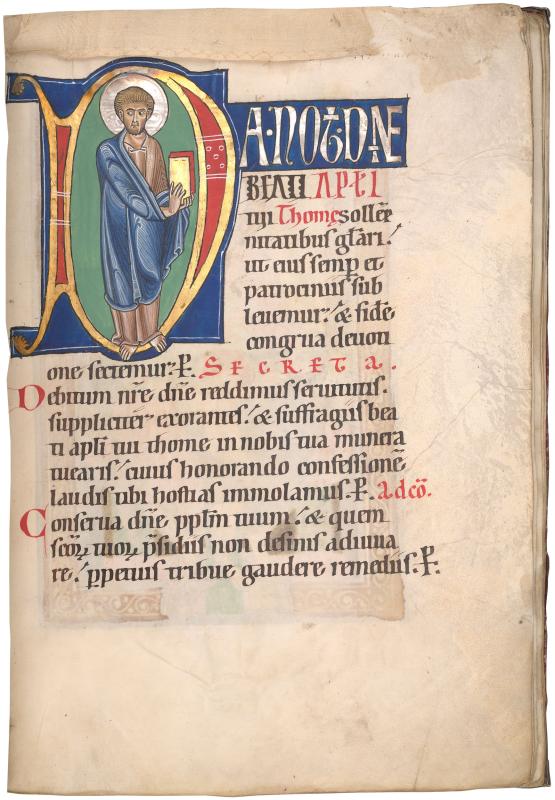 DA·NOB·DNE
BEATI APLI
tui Thome sollē
nitatibus glāri.
ut eius semp et
patrociniis sub
leuemur. & fidē
congrua deuoti
one sectemur. P. SECRETA.
Debitum nrē dnē reddimus seruitutis.
suppliciter exorantes. & suffragiis bea
ti apli tui thome in nobis tua munera
tuearis. cuius honorando confessionē
laudis tibi hostias immolamus. P. adcō.
Conserua dnē pplm tuum. & quem
scōꝝ tuoꝝ p̄sidiis non desinis adiuua
re. ꝑpetuis tribue gaudere remediis. P.